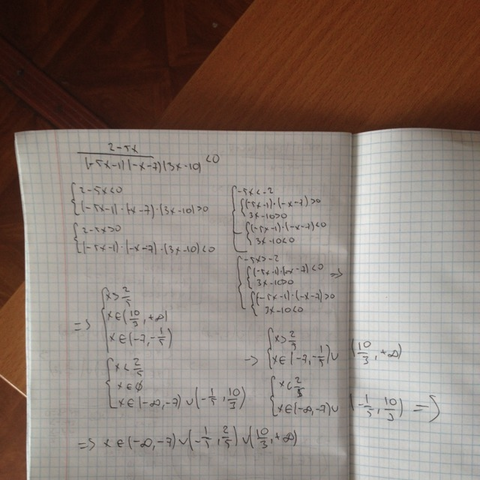 (2-5x)/((-5x-1)(-x-7)(3x-10)) <0
{2-5x<0
{(-5x-1)·(-x-7)·(3x-10)>0
{2-5x>0
{(-5x-1)·(-x-7)·(3x-10)<0
{-5x<-2
{(-5x-1)·(-x-7)>0
3x-10>0
{(-5x-1)·(-x-7)<0
3x-10<0
{-5x>-2
{(-5x-1)·(-x-7)<0 =>
3x-10>0
{(-5x-1)·(-x-7)>0
3x-10<0
=> {x>2/5
x∈(10/3,+∞)
x∈(-7,-1/5)
{x<2/5
x∈∅
x∈(-∞,-7)∪(-1/5,10/3)
=> {x>2/5
x∈(-7,-1/5)∪(10/3,+∞)
{x<2/5
x∈(-∞,-7)∪(-1/5,10/3) =>
=> x∈(-∞,-7)∪(-1/5,2/5)∪(10/3,+∞)